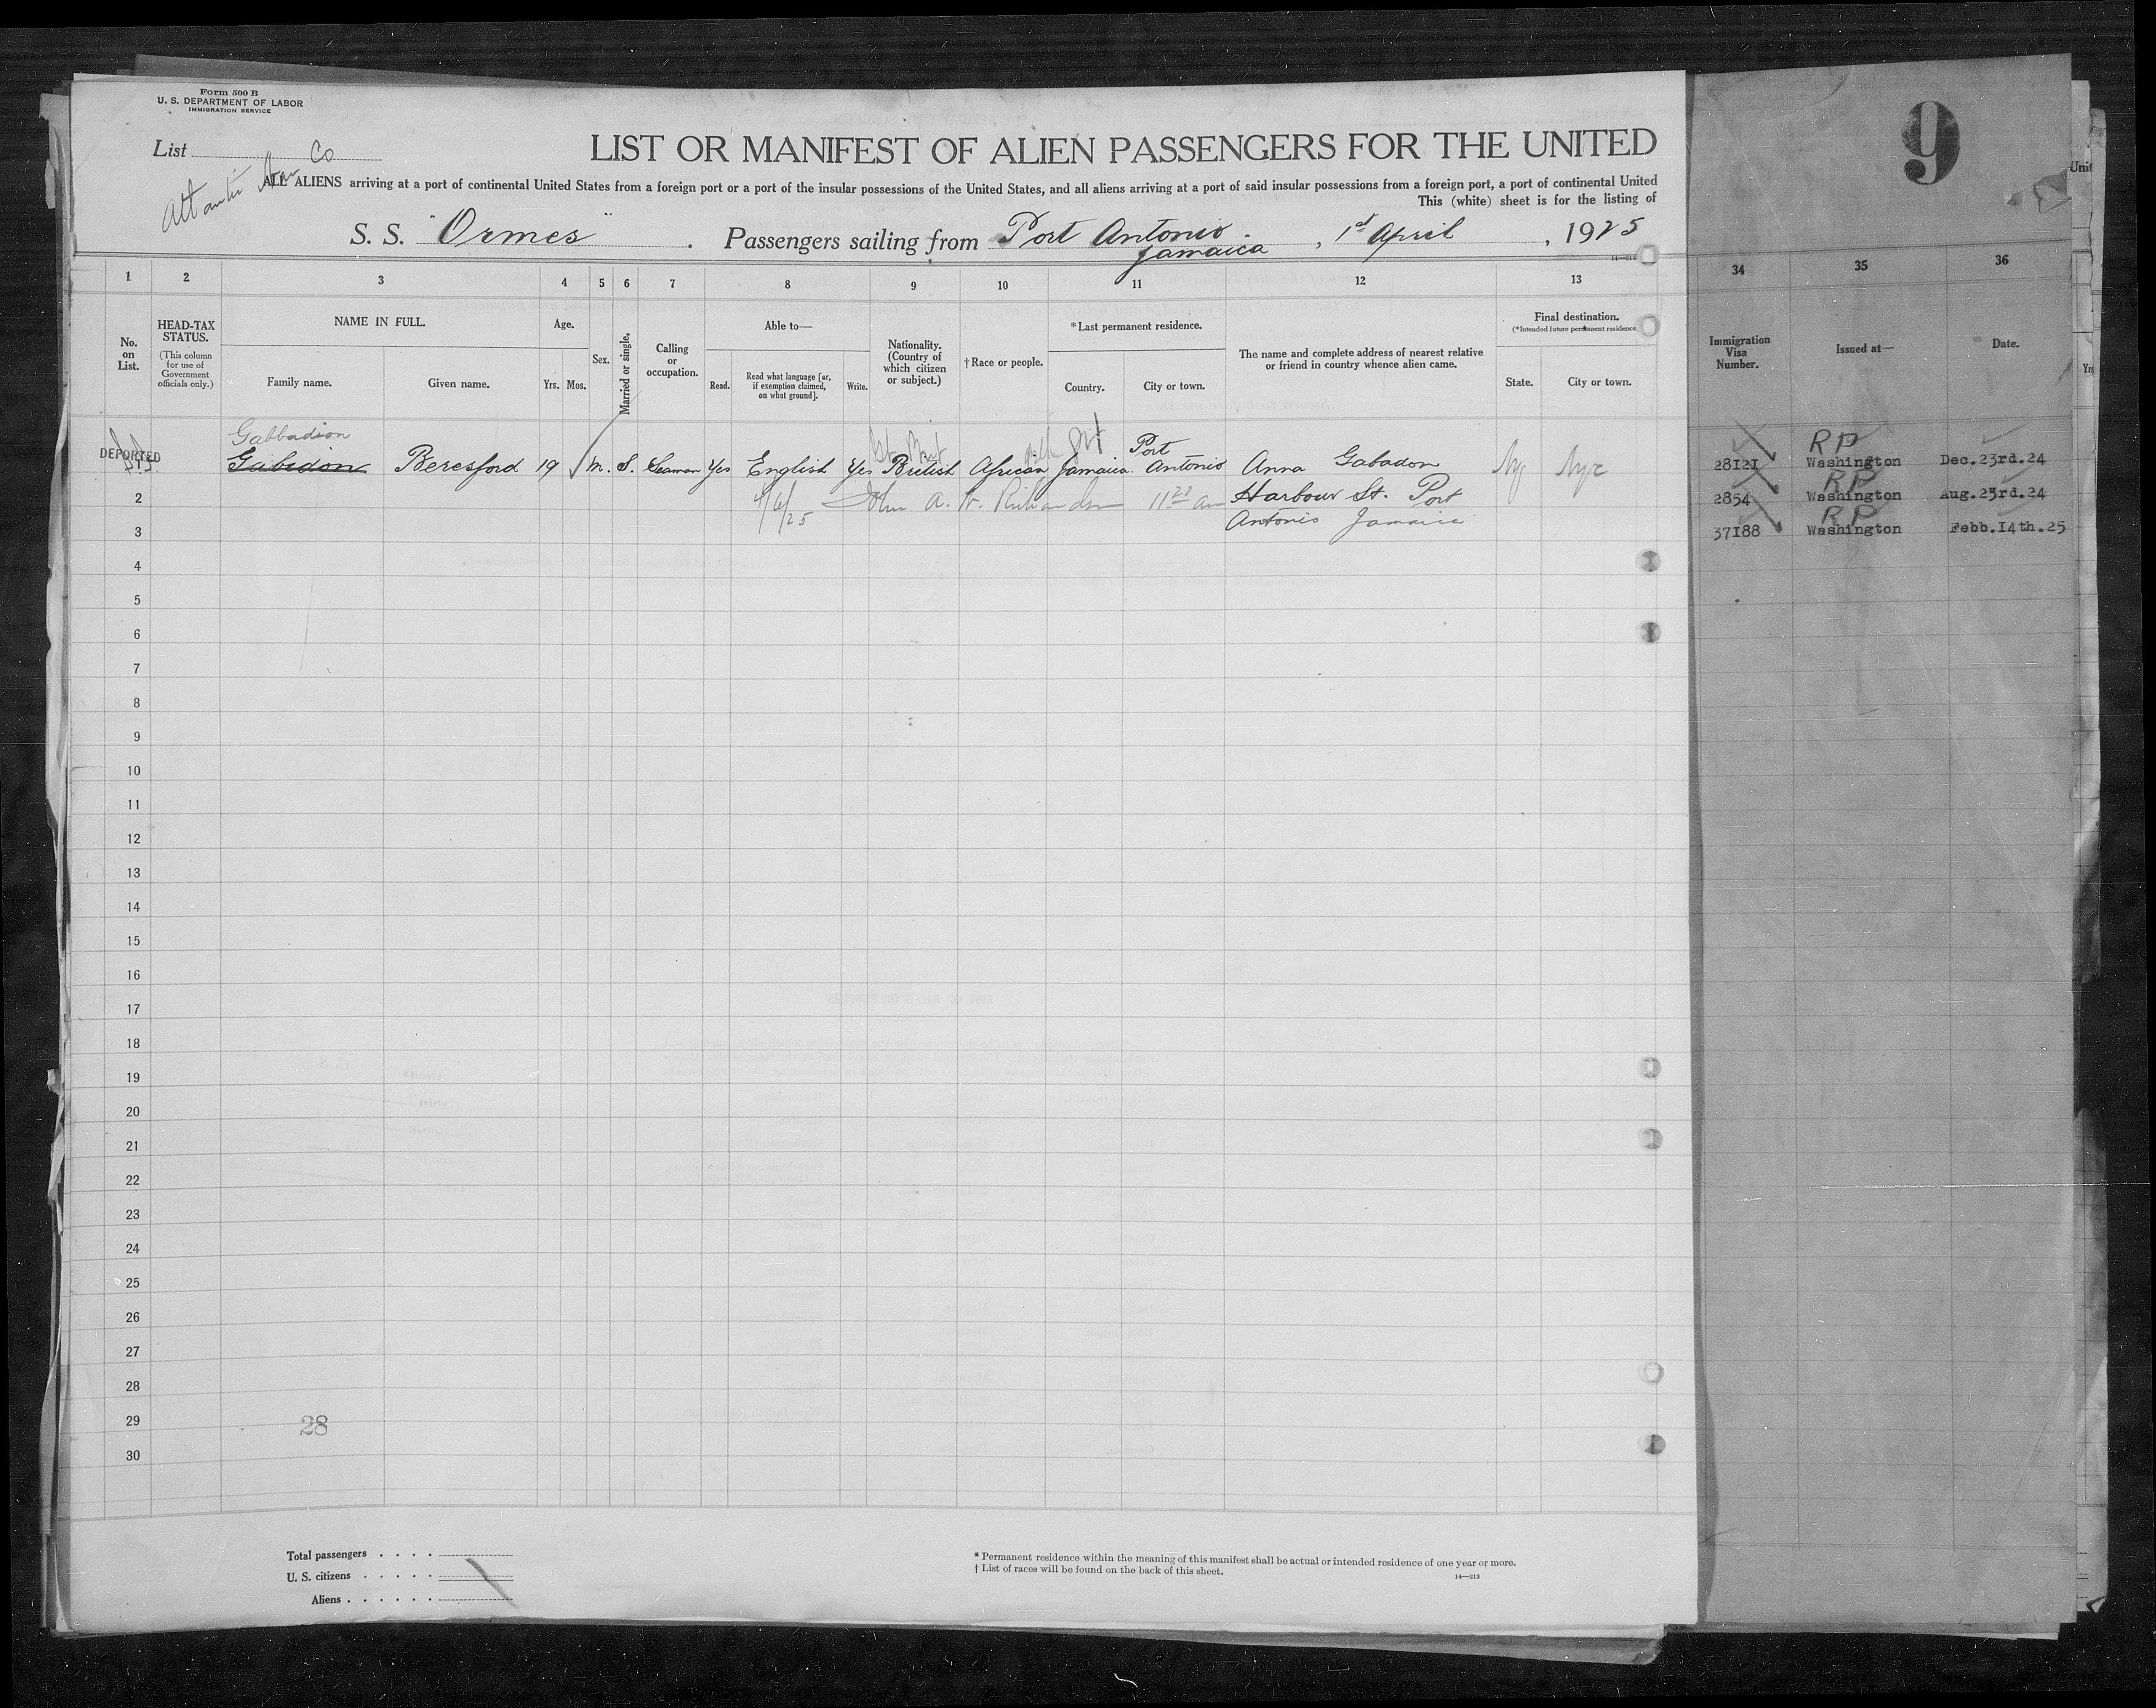 Form 500 B
U. S. DEPARTMENT OF LABOR
IMMIGRATION SERVICE
List
Co
LIST OR MANIFEST OF ALIEN PASSENGERS FOR THE UNITED
ALL ALIENS arriving at a port of continental United States from a foreign port or a port of the insular possessions of the United States, and all aliens arriving at a port of said insular possessions from a foreign port, a port of continental United
This (white) sheet is for the listing of
S. S. "Ormes" . Passengers sailing from Port Antonio Jamaica , 1st April , 1925
9
Unit
1 2 3 4 5 6 7 8 9 10 11 12 13 34 35 36
No. on List.
HEAD-TAX STATUS.
(This column for use of Government officials only.)
NAME IN FULL.
Family name. Given name.
Age.
Yrs. Mos.
Sex.
Married or single.
Calling or occupation.
Able to—
Read. Read what language [or, if exemption claimed, on what ground]. Write.
Nationality. (Country of which citizen or subject.)
† Race or people.
* Last permanent residence.
Country. City or town.
The name and complete address of nearest relative or friend in country whence alien came.
Final destination.
(* Intended future permanent residence.)
State. City or town.
Immigration Visa Number.
Issued at—
Date.
Yrs
Gabbadion
DEPORTED Gabidon Beresford 19 M. S. Seaman Yes English Yes British African Jamaica Port Antonio Anna Gabadon NY NYC
Harbour St. Port
Antonio Jamaica
4/6/25 John A. W. Richardson 11 20 am
RP
28121 Washington Dec.23rd.24
RP
2854 Washington Aug.23rd.24
RP
37188 Washington Febb.14th.25
2
3
4
5
6
7
8
9
10
11
12
13
14
15
16
17
18
19
20
21
22
23
24
25
26
27
28
29
28
30
Total passengers . . . .
U. S. citizens . . . . .
Aliens . . . . . .
* Permanent residence within the meaning of this manifest shall be actual or intended residence of one year or more.
† List of races will be found on the back of this sheet.
14—213